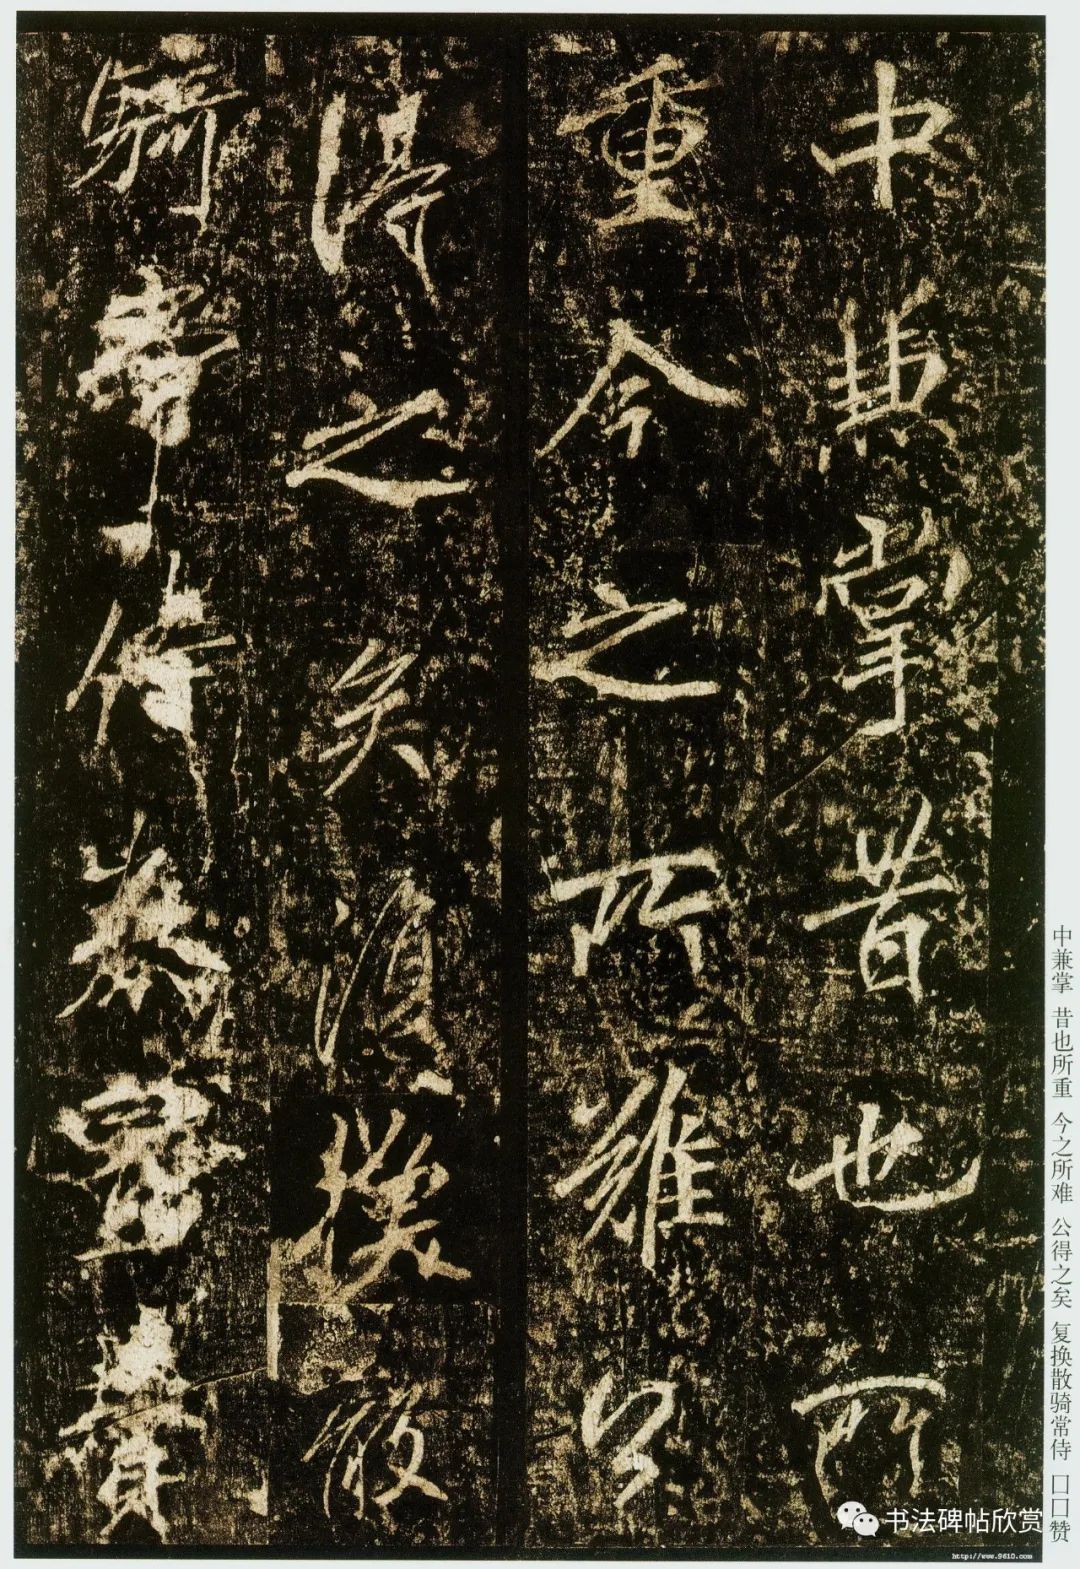 中兼掌昔也所
重今之所難公
得之矣復換散
騎常侍
中兼掌 昔也所重 今之所难 公得之矣 复换散骑常侍 口口赞
书法碑帖欣赏
http://www.9610.com